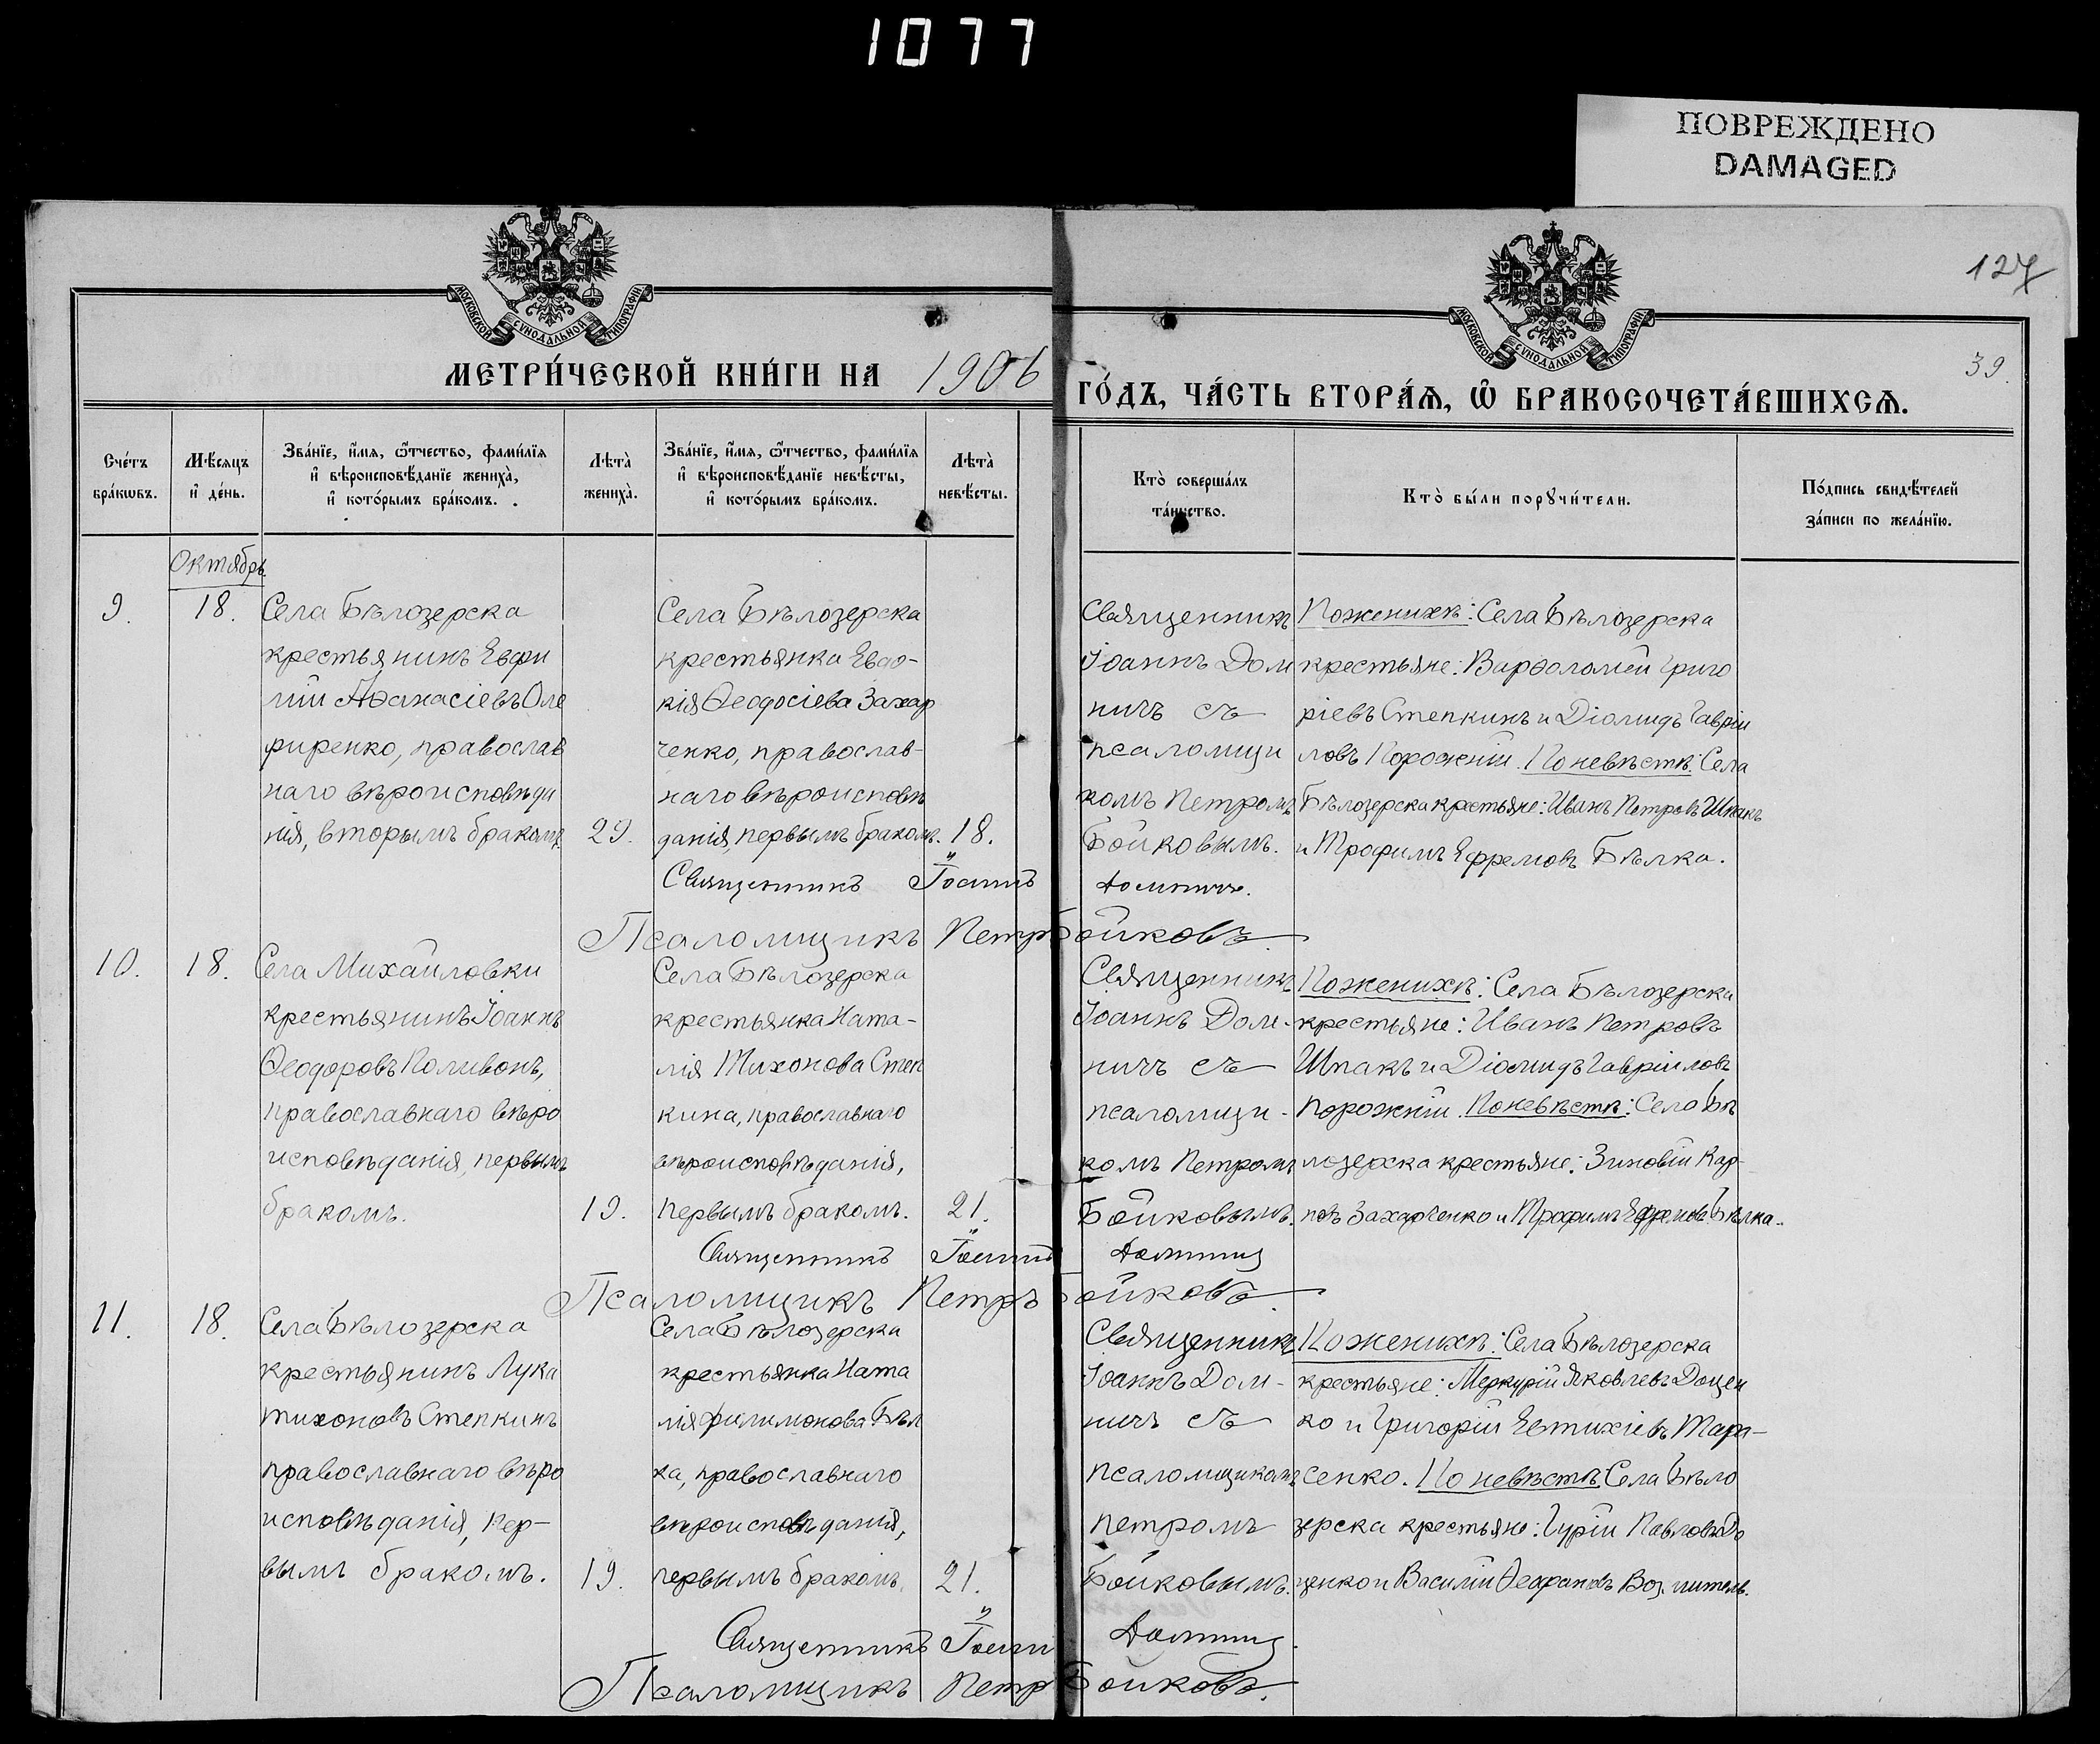 1077
ПОВРЕЖДЕНО
DAMAGED
МОСКОВСКОЙ СѴНОДАЛЬНОЙ ТИПОГРАФІИ
МОСКОВСКОЙ СѴНОДАЛЬНОЙ ТИПОГРАФІИ
127
39.
МЕТРИ́ЧЕСКОЙ КНИ́ГИ НА 1906
ГО́ДЪ, ЧА́СТЬ ВТОРА́Ѧ, Ѡ҆ БРАКОСОЧЕТА́ВШИХСѦ.
Сче́тъ бра́кѡвъ.
Мѣ́сяцъ и҆ де́нь.
Зва́нїе, и҆́мя, ѻ҆́тчество, фами́лїя
и҆ вѣроисповѣ́данїе жениха̀,
и҆ кото́рымъ бра́комъ.
Лѣта̀ жениха̀.
Зва́нїе, и҆́мя, ѻ҆́тчество, фами́лїя
и҆ вѣроисповѣ́данїе невѣ́сты,
и҆ кото́рымъ бра́комъ.
Лѣта̀ невѣ́сты.
Кто̀ соверша́лъ та́инство.
Кто̀ бы́ли порꙋчи́тели.
По́дпись свидѣ́телей
за́писи по жела́нїю.
Октябрь.
9.
18.
Села Бѣлозерска
крестьянинъ Евфи
мій Аѳанасіевъ Оле
фиренко, православ
наго вѣроисповѣда
нія, вторымъ бракомъ.
29.
Села Бѣлозерска
крестьянка Евдо-
кія Ѳеодосіева Захар
ченко, православ-
наго вѣроисповѣ
данія, первымъ бракомъ.
18.
Священникъ
Іоаннъ Дом
ничъ съ
псаломщи
комъ Петромъ
Бойковымъ.
По женихѣ: Села Бѣлозерска
крестьяне: Варѳоломей Григо
ріевъ Степкинъ и Діомидъ Гаврiи
ловъ Порожній. По невѣстѣ: Села
Бѣлозерска крестьяне: Иванъ Петровъ Шпакъ
и Трофимъ Ефремовъ Бѣлка.
Священникъ Іоаннъ Домничъ.
Псаломщикъ Петръ Бойковъ.
10.
18.
Села Михайловки
крестьянинъ Іоаннъ
Ѳеодоровъ Поливонъ,
православнаго вѣро
исповѣданія, первымъ
бракомъ.
19.
Села Бѣлозерска
крестьянка Ната-
лія Тихонова Степ
кина, православнаго
вѣроисповѣданія,
первымъ бракомъ.
21.
Священникъ
Іоаннъ Дом-
ничъ съ
псаломщи-
комъ Петромъ
Бойковымъ.
По женихѣ: Села Бѣлозерска
крестьяне: Иванъ Петровъ
Шпакъ и Діомидъ Гавріиловъ
Порожній. По невѣстѣ: Села Бѣ
лозерска крестьяне: Зиновій Кар-
повъ Захарченко и Трофимъ Ефремовъ Бѣлка.
Священникъ Іоаннъ Домничъ
Псаломщикъ Петръ Бойковъ.
11.
18.
Села Бѣлозерска
крестьянинъ Лука
Тихоновъ Степкинъ
православнаго вѣро
исповѣданія, пер-
вымъ бракомъ.
19.
Села Бѣлозерска
крестьянка Ната
лія Филимонова Бѣл
ка, православнаго
вѣроисповѣданія,
первымъ бракомъ.
21.
Священникъ
Іоаннъ Дом-
ничъ съ
псаломщикомъ
Петромъ
Бойковымъ.
По женихѣ: Села Бѣлозерска
крестьяне: Меркурій Яковлевъ Доцен
ко и Григорій Евтихіевъ Тара-
сенко. По невѣстѣ Села Бѣло
зерска крестьяне: Гурій Павловъ До
ценко и Василій
Священникъ Іоаннъ Домничъ.
Псаломщикъ Петръ Бойковъ.